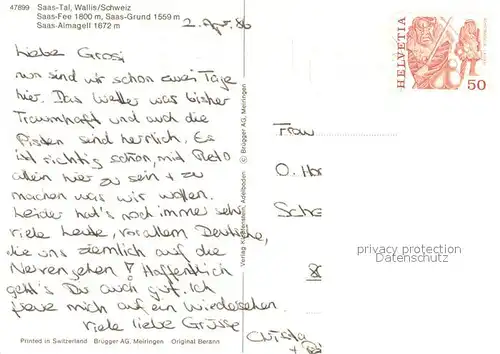 47899 Saas-Tal, Wallis/Schweiz
Saas-Fee 1800 m, Saas-Grund 1559 m
Saas-Almagell 1672 m
2. Apr. 86
HELVETIA
50
Liebe Grosi
nun sind wir schon zwei Tage
hier. Das Wetter war bisher
Traumhaft und auch die
Pisten sind herrlich. Es
ist richtig schön, mit Reto
allein hier zu sein + zu
machen was wir wollen.
Leider hat's noch immer sehr
viele Leute, vor allem Deutsche,
die uns ziemlich auf die
Nerven gehen! Hoffentlich
geht's Dir auch gut. Ich
freue mich auf ein Wiedersehen.
Viele liebe Grüsse
Christa
+
Frau
O.
8
© Brügger AG, Meiringen
Verlag Klopfenstein, Adelboden
privacy protection
Datenschutz
Printed in Switzerland Brügger AG, Meiringen Original Berann